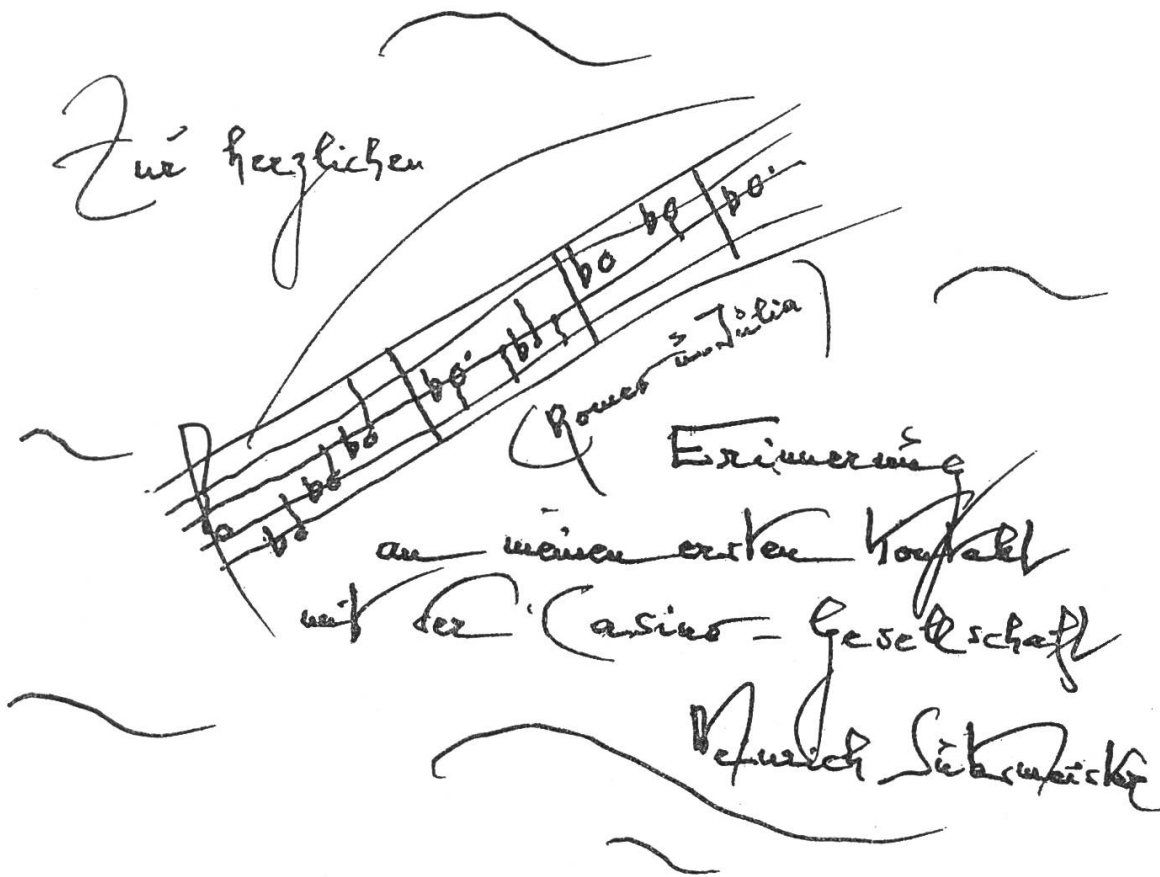 Zur herzlichen
(Romeo u. Julia)
Erinnerung
an meinen ersten Kontakt
mit der Casino-Gesellschaft
Heinrich Sutermeister